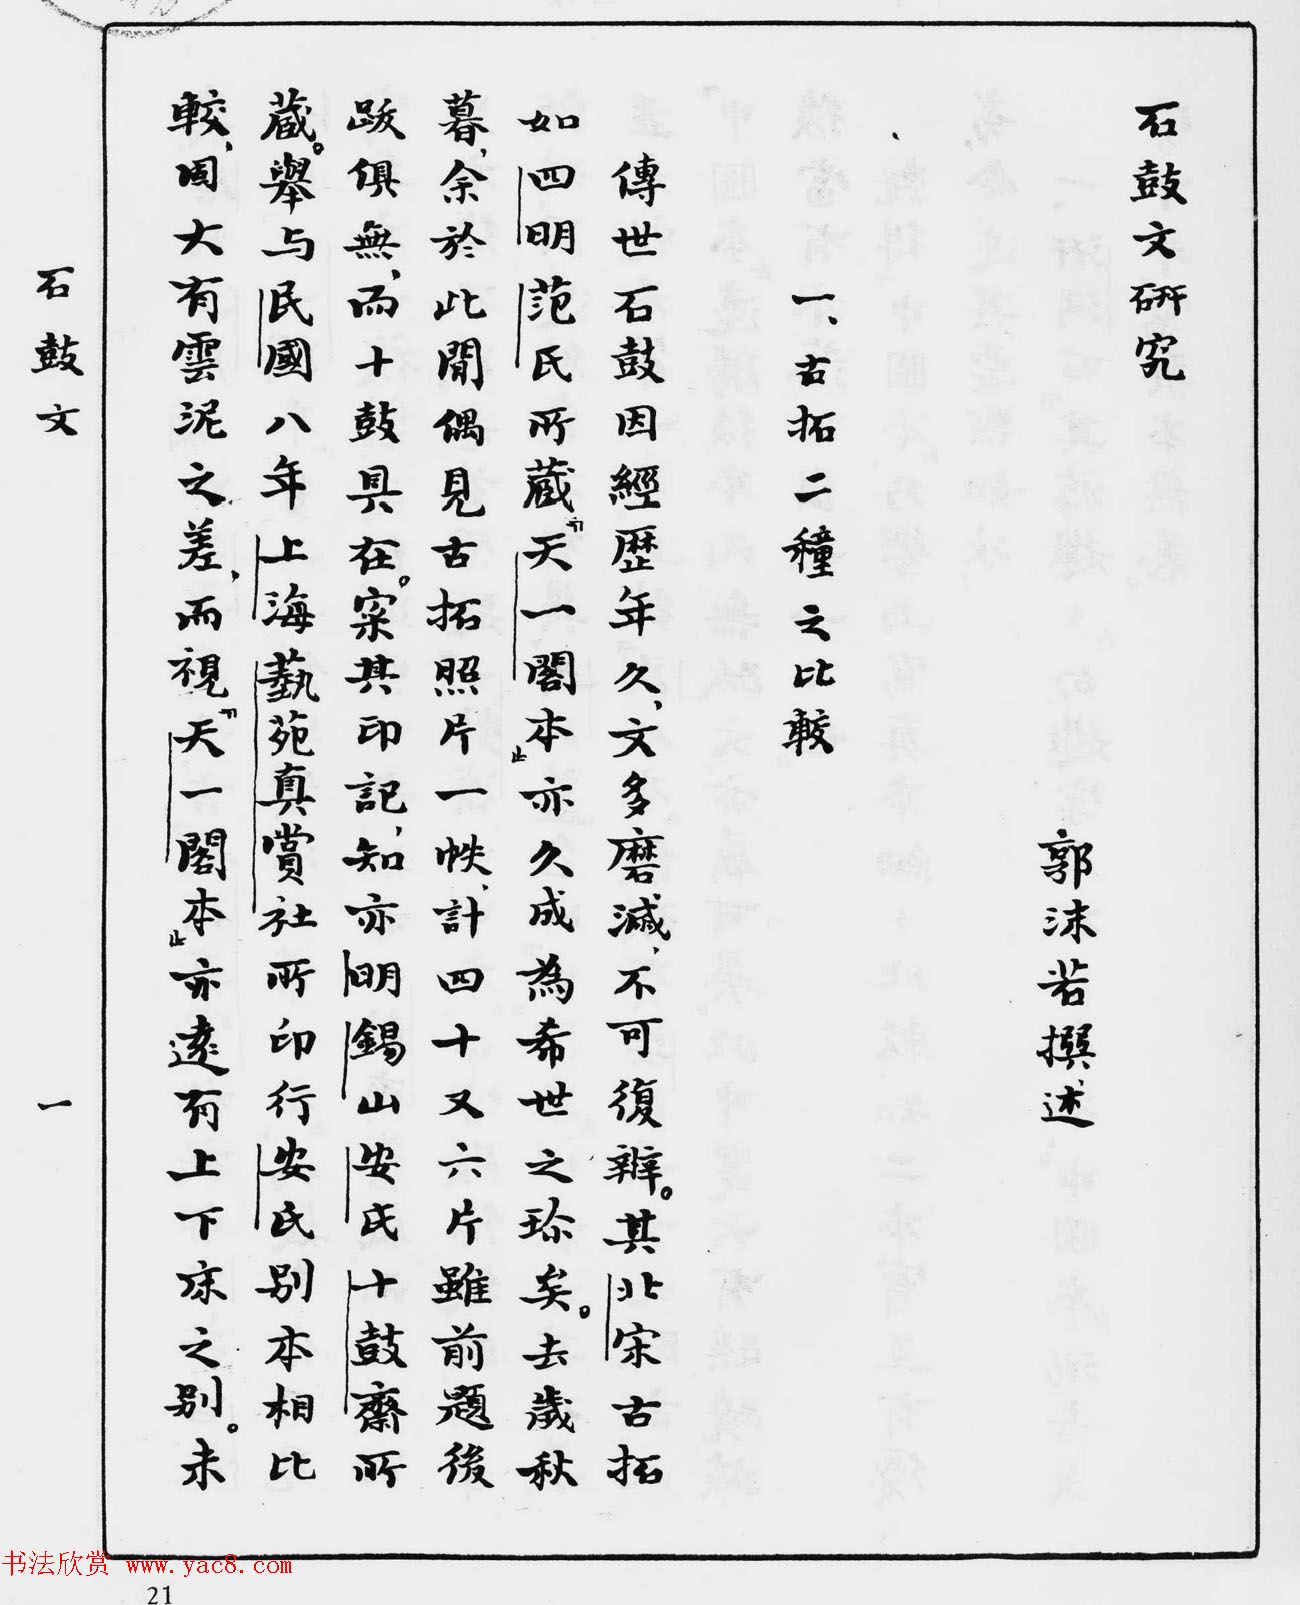 石鼓文研究
郭沫若撰述
一、古拓二種之比較
傳世石鼓因經歷年久、文多磨滅、不可復辨。其北宋古拓
如四明范氏所藏『天一閣本』亦久成為希世之珍矣。去歲秋
暮、余於此間偶見古拓照片一帙、計四十又六片雖前題後
跋俱無、而十鼓具在。案其印記、知亦明錫山安氏十鼓齋所
藏。舉与民國八年上海藝苑真賞社所印行安氏别本相比
較、固大有雲泥之差、而視『天一閣本』亦遠有上下床之别。未
石鼓文
一
书法欣赏 www.yac8.com
21